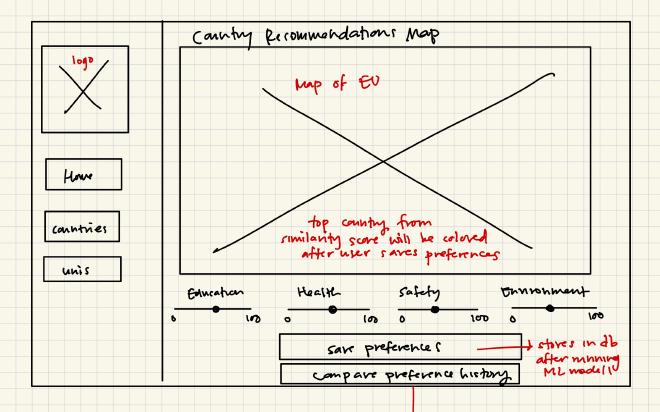 Country Recommendations Map
logo
Home
countries
unis
Map of EU
top country from
similarity score will be colored
after user saves preferences
Education
0 100
Health
0 100
Safety
0 100
Environment
0 100
save preferences
stores in db
after running
ML model 1
compare preference history